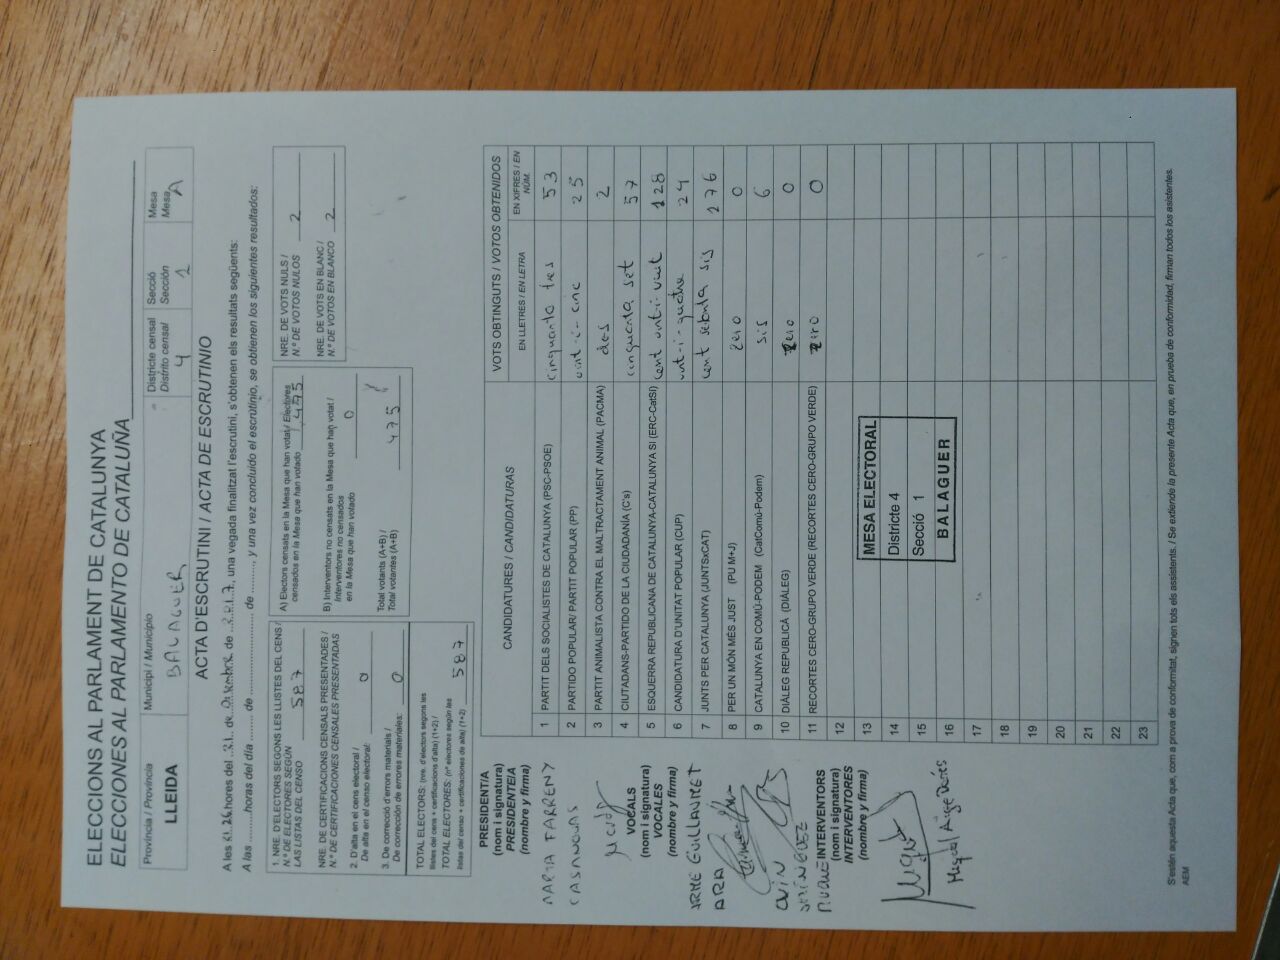 ELECCIONS AL PARLAMENT DE CATALUNYA
ELECCIONES AL PARLAMENTO DE CATALUÑA
Província / Provincia
LLEIDA
Municipi / Municipio
BALAGUER
Districte censal
Distrito censal
4
Secció
Sección
1
Mesa
Mesa
A
ACTA D'ESCRUTINI / ACTA DE ESCRUTINIO
A les 21.26 hores del 21 de Desembre de 2017, una vegada finalitzat l'escrutini, s'obtenen els resultats següents:
A las ........horas del día ....... de ............................ de ........, y una vez concluido el escrutinio, se obtienen los siguientes resultados:
1. NRE. D'ELECTORS SEGONS LES LLISTES DEL CENS /
N.º DE ELECTORES SEGÚN
LAS LISTAS DEL CENSO
587
NRE. DE CERTIFICACIONS CENSALS PRESENTADES /
N.º DE CERTIFICACIONES CENSALES PRESENTADAS
2. D'alta en el cens electoral /
De alta en el censo electoral:
0
3. De correcció d'errors materials /
De corrección de errores materiales:
0
TOTAL ELECTORS: (nre. d'electors segons les
llistes del cens + certificacions d'alta) (1+2) /
TOTAL ELECTORES: (nº electores según las
listas del censo + certificaciones de alta) (1+2)
587
A) Electors censats en la Mesa que han votat / Electores
censados en la Mesa que han votado
475
B) Interventors no censats en la Mesa que han votat /
Interventores no censados
en la Mesa que han votado
0
Total votants (A+B) /
Total votantes (A+B)
475
NRE. DE VOTS NULS /
N.º DE VOTOS NULOS
2
NRE. DE VOTS EN BLANC /
N.º DE VOTOS EN BLANCO
2
CANDIDATURES / CANDIDATURAS
VOTS OBTINGUTS / VOTOS OBTENIDOS
EN LLETRES / EN LETRA
EN XIFRES / EN NÚM.
1 PARTIT DELS SOCIALISTES DE CATALUNYA (PSC-PSOE) cinquanta tres 53
2 PARTIDO POPULAR/ PARTIT POPULAR (PP) vint-i-cinc 25
3 PARTIT ANIMALISTA CONTRA EL MALTRACTAMENT ANIMAL (PACMA) dos 2
4 CIUTADANS-PARTIDO DE LA CIUDADANÍA (C's) cinquanta set 57
5 ESQUERRA REPUBLICANA DE CATALUNYA-CATALUNYA SI (ERC-CatSI) cent vint-i-vuit 128
6 CANDIDATURA D'UNITAT POPULAR (CUP) vint-i-quatre 24
7 JUNTS PER CATALUNYA (JUNTSxCAT) cent setanta sis 176
8 PER UN MÓN MÉS JUST (PU M+J) zero 0
9 CATALUNYA EN COMÚ-PODEM (CatComú-Podem) sis 6
10 DIÀLEG REPUBLICÀ (DIÀLEG) zero 0
11 RECORTES CERO-GRUPO VERDE (RECORTES CERO-GRUPO VERDE) zero 0
12
13
14
15
16
17
18
19
20
21
22
23
MESA ELECTORAL
Districte 4
Secció 1
BALAGUER
PRESIDENT/A
(nom i signatura)
PRESIDENTE/A
(nombre y firma)
MARTA FARRENY
CASANOVAS
VOCALS
(nom i signatura)
VOCALES
(nombre y firma)
GUILLAUMET
INTERVENTORS
(nom i signatura)
INTERVENTORES
(nombre y firma)
Miquel Àngel
S'estén aquesta Acta que, com a prova de conformitat, signen tots els assistents. / Se extiende la presente Acta que, en prueba de conformidad, firman todos los asistentes.
AEM